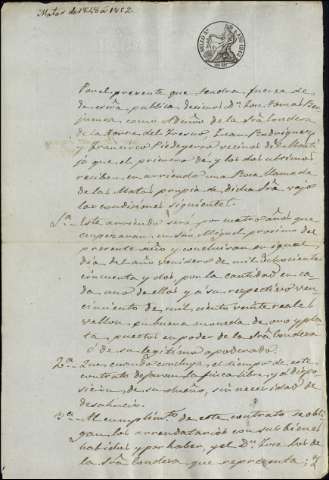 Matas de 1848 a 1852
Por el presente que tendra fuerza de
escritura publica decimos Dn. Jose
como Admor. de la Sra. Condesa
de la Torre del Fresno, Juan Rodriguez
y Francisco Piedehierro vecinos de Monti
jo que el primero da y los dos ultimos
reciben en arriendo una llamada
de las Matas propia de dicha Sra. vajo
las condiciones siguientes:
1ª Este arriendo será por cuatro años que
empezaran en San Miguel proximo del
presente año y concluiran en igual
dia del año venidero de mil ochocientos
cincuenta y dos por la cantidad en ca
da uno de ellos y a su respectivo ven
cimiento de mil ciento veinte reales
vellon en buena moneda de oro y plata
puestos en poder de la Sra. Condesa
ó de su legitimo apoderado.
2ª Que cuando concluya el tiempo de este
contrato dejaran la finca libre y á dispo
sicion de su dueño, sin necesidad de
desahucio.
3ª Al cumplimiento de este contrato se obli
gan los arrendatarios con sus bienes
habidos y por haber, y el Dn. Jose los de
la Sra. Condesa que representa; y